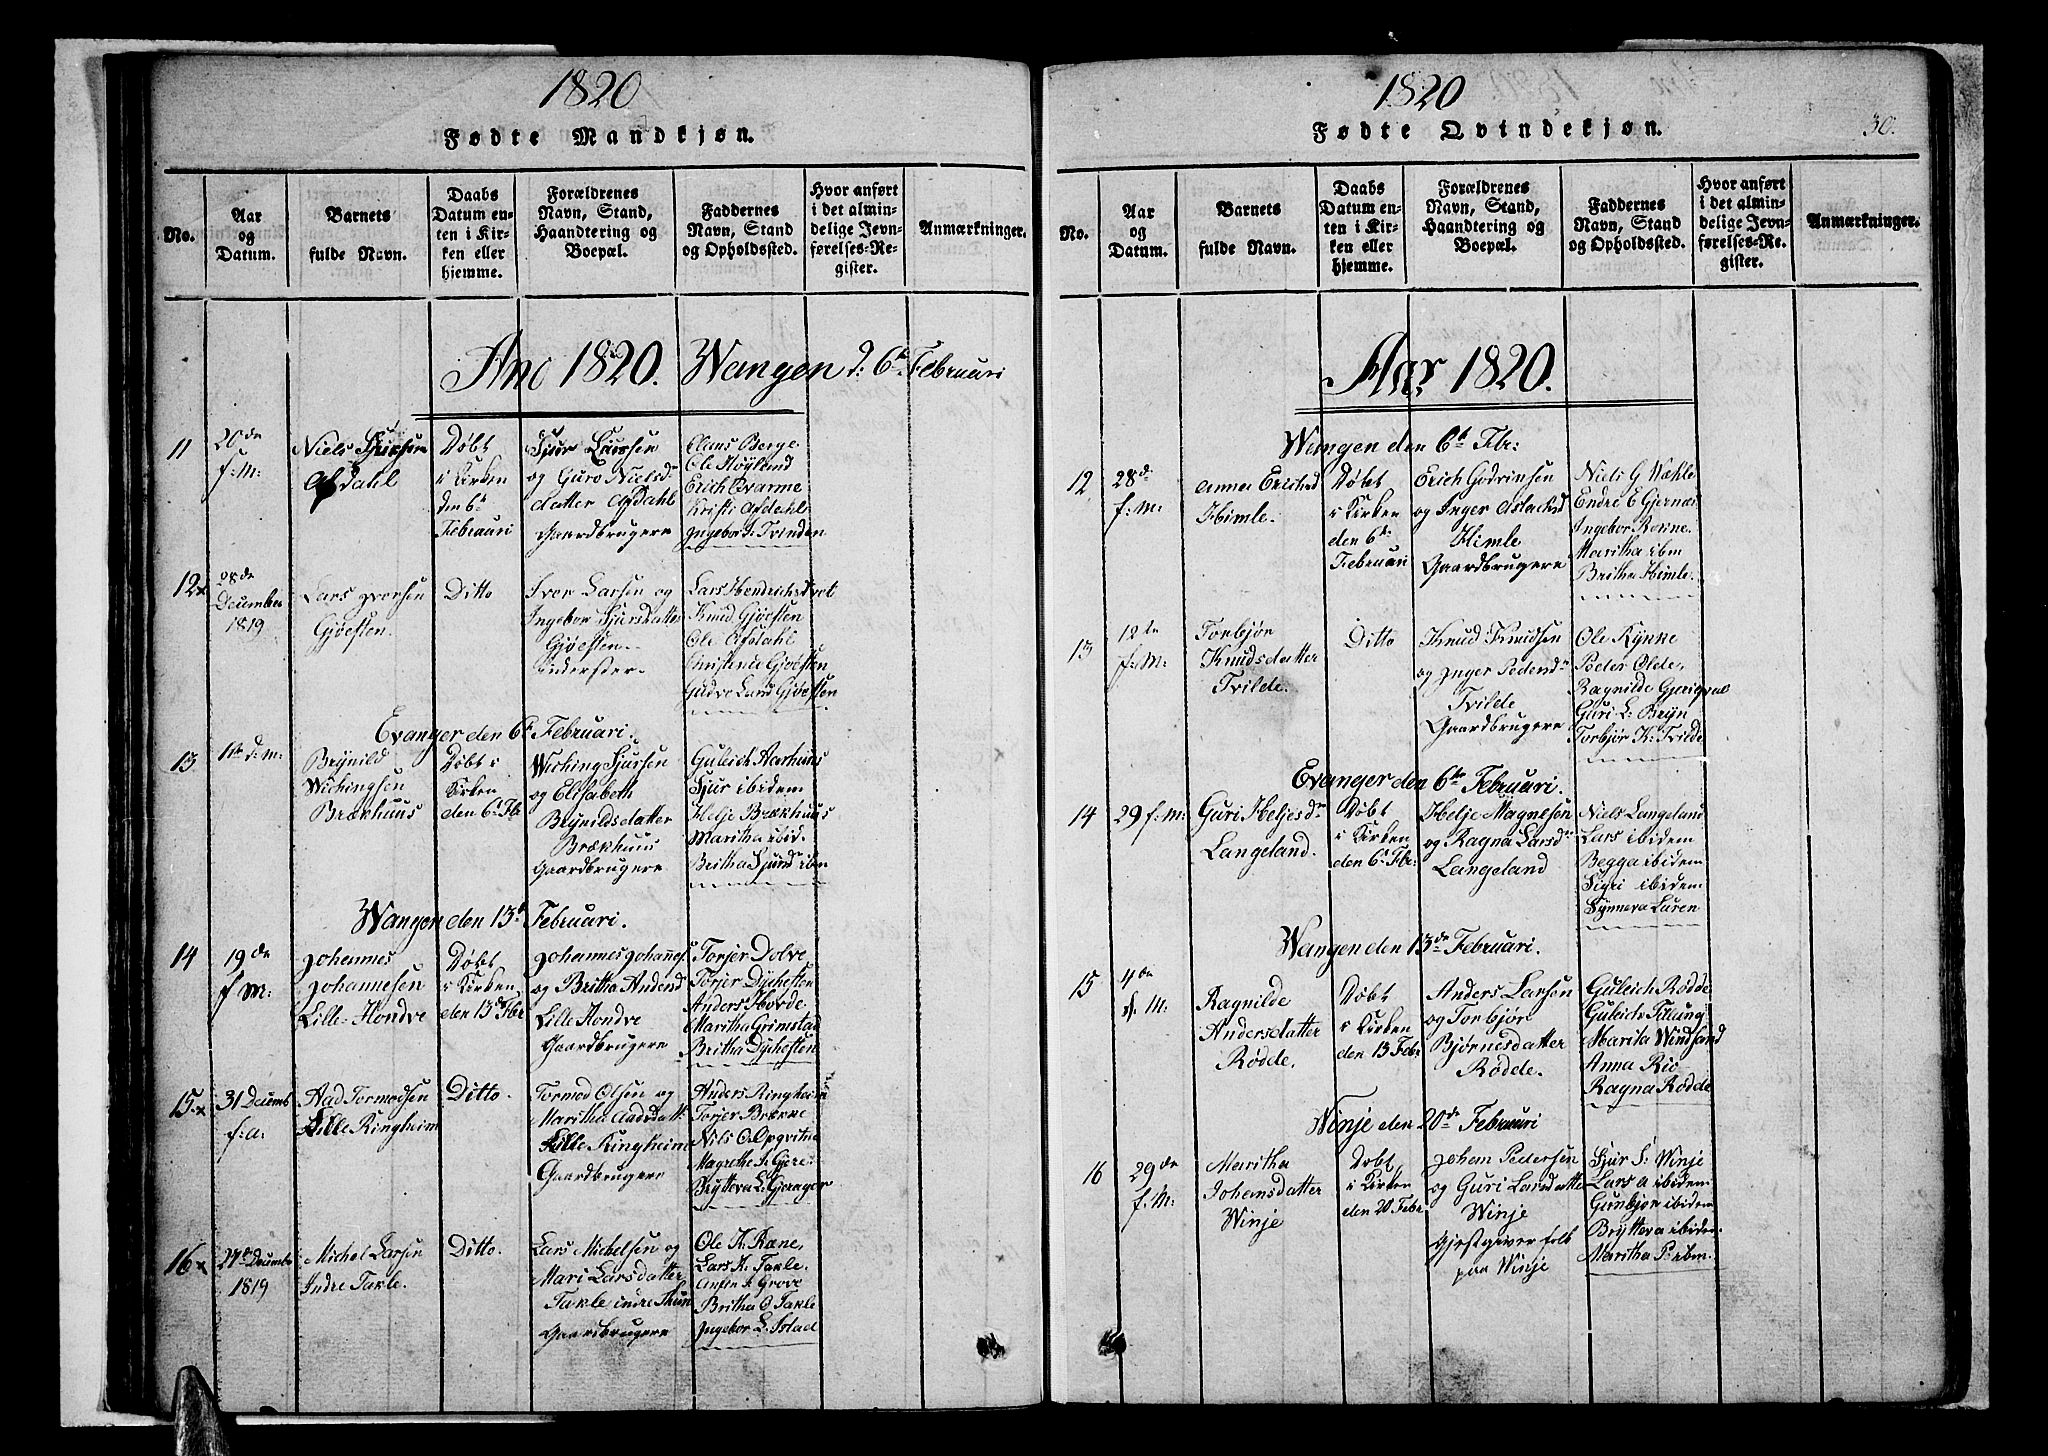 1820
Fødte Mandkjøn.
No.
Aar
og
Datum.
Barnets
fulde Navn.
Daabs
Datum en-
ten i Kir-
ken eller
hjemme.
Forældrenes
Navn, Stand,
Haandtering og
Boepæl.
Faddernes
Navn, Stand
og Opholdssted.
Hvor anført
i det almin-
delige Jevn-
førelses-Re-
gister.
Anmærkninger.
Ano 1820. Wangen d: 6te Februari
11
20de
f: M:
Niels Sjursen
Afdahl
Døbt
i Kirken
den 6te
Februari
Sjur Larsen
og Guro Niels
datter Afdahl
Gaardbrugere
Claus Berge
Ole Høyland
Erich Qvarme
Kristi Afdahl
Ingebor I. Tvinden
12x
28de
December
1819
Lars Iversen
Gjøesten.
Ditto
Iver Larsen og
Ingebor Sjursdatter
Gjøesten
Inderster
Lars Hendrichs Tvet
Knud Gjøesten
Ole Afdahl
Christense Gjøesten
Gudve Lars Gjøesten
Evanger den 6te Februari.
13
1te d: M:
Brynild
Wichingsen
Brækhuus
Døbt i
Kirken
den 6te Fbr
Wiching Sjursen
og Elisabeth
Brynildsdatter
Brækhuus
Gaardbrugere
Guleich Aarhuus
Sjur ibidem
Helje Brækhuus
Maritha ibid.
Britha Sjursd ibm
Wangen den 13te Februari.
14
19de
f M:
Johannes
Johannesen
Lille-Hondve
Døbt
i Kirken
den 13de Fbr
Johannes Johannes.
og Britha Andersd
Lille Hondve
Gaardbrugere
Torjer Dolve
Torjer Dychesten
Anders Horde
Maritha Grimstad
Britha Dychesten
15x
31 Decemb
f: a:
Aad Tormodsen
Lille Ringheim
Ditto.
Tormod Olsen og
Maritha Aadsdatt
Lille Ringheim
Gaardbrugere
Anders Ringheim
Torjer Brærne
Nils O. Opqvitne
Magrethe I. Gjere
Brytteva L. Gjerager
16x
27de Decembr
1819
Michel Larsen
Indre Takle.
Ditto.
Lars Michelsen og
Mari Larsdatter
Takle indre Thun
Gaardbrugere
Ole K. Røne,
Lars K. Takle.
Anfin I. Grove
Britha O. Takle
Ingebor L. Istad
1820
Fødte Qvindekjøn.
30.
No.
Aar
og
Datum.
Barnets
fulde Navn.
Daabs
Datum en-
ten i Kir-
ken eller
hjemme.
Forældrenes
Navn, Stand,
Haandtering og
Boepæl.
Faddernes
Navn, Stand
og Opholdssted.
Hvor anført
i det almin-
delige Jevn-
førelses-Re-
gister.
Anmærkninger.
Aar 1820.
Wangen den 6te Fbr:
12
28de
f: M:
Anna Erichsd
Himle.
Døbt
i Kirken
den 6te
Februari
Erich Godrinsen
og Inger Aslacksd
Himle
Gaardbrugere
Niels G Wahle
Endre E Gjernæs
Ingebor Rorne
Maritha ibm
Britha Himle.
13
12te
f: M:
Torbjør
Knudsdatter
Tvilde.
Ditto
Knud Knudsen
og Inger Pedersd
Tvilde
Gaardbrugere
Ole Rynne
Peder Olde,
Ragnilde Gjeriqval
Guri L: Bryn
Torbjør K: Tvilde
Evanger den 6te Februari.
14
29 f: M:
Guri Heljesdr
Langeland.
Døbt
i Kirken
den 6te Fbr:
Helje Magnesen
og Ragna Larsdr
Langeland
Niels Langeland
Lars ibidem
Begga ibidem
Sigri ibidem
Synneva Luren
Wangen den 13de Februari.
15
4de
d. M:
Ragnilde
Andersdatter
Rødde.
Døbt
i Kirken
den 13 Febr
Anders Larsen
og Torbjør
Bjørnesdatter
Rødde.
Guleich Rødde
Guleich Tillung
Marita Windsand
Anna Rio
Ragna Rødde
Winje den 20de Februari
16
29de
f: M:
Maritha
Johansdatter
Winje
Døbt
i Kirken
den 20 Febr.
Johan Pedersen
og Guri Larsdatter
Winje
Gjestgiver folk
paa Winje
Sjur S: Winje
Lars A ibidem
Gunbjør ibidem
Bryteva ibidem
Maritha P. ibm.